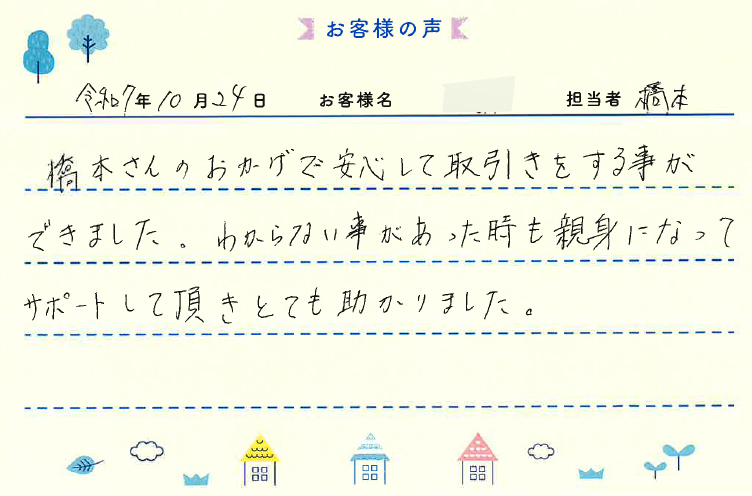 お客様の声
令和7年10月24日 お客様名 担当者 橋本
橋本さんのおかげで安心して取引きをする事が
できました。わからない事があった時も親身になって
サポートして頂きとても助かりました。